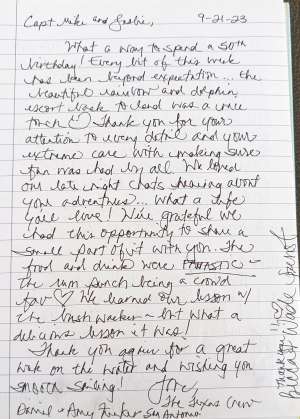 Capt Mike and 9-21-23
What a way to spend a 50th
birthday! Every bit of this week
has been beyond expectation... the
beautiful rainbow and dolphin
escort back to land was a nice
touch Thank you for your
attention to every detail and your
extreme care with making sure
fun was had by all. We loved
our late night chats hearing about
your adventures... What a life
you live! We're grateful we
had this opportunity to share a
small part of it with you. The
food and drink were FANTASTIC -
the rum punch being a crowd
fav ♡ We learned our lesson w/
the bushwacker - but what a
delicious lesson it was!
Thank you again for a great
week on the water and wishing you
smooth sailing! Love,
The Texas Crew
Daniel & Amy San Antonio
Thank you!! ♡